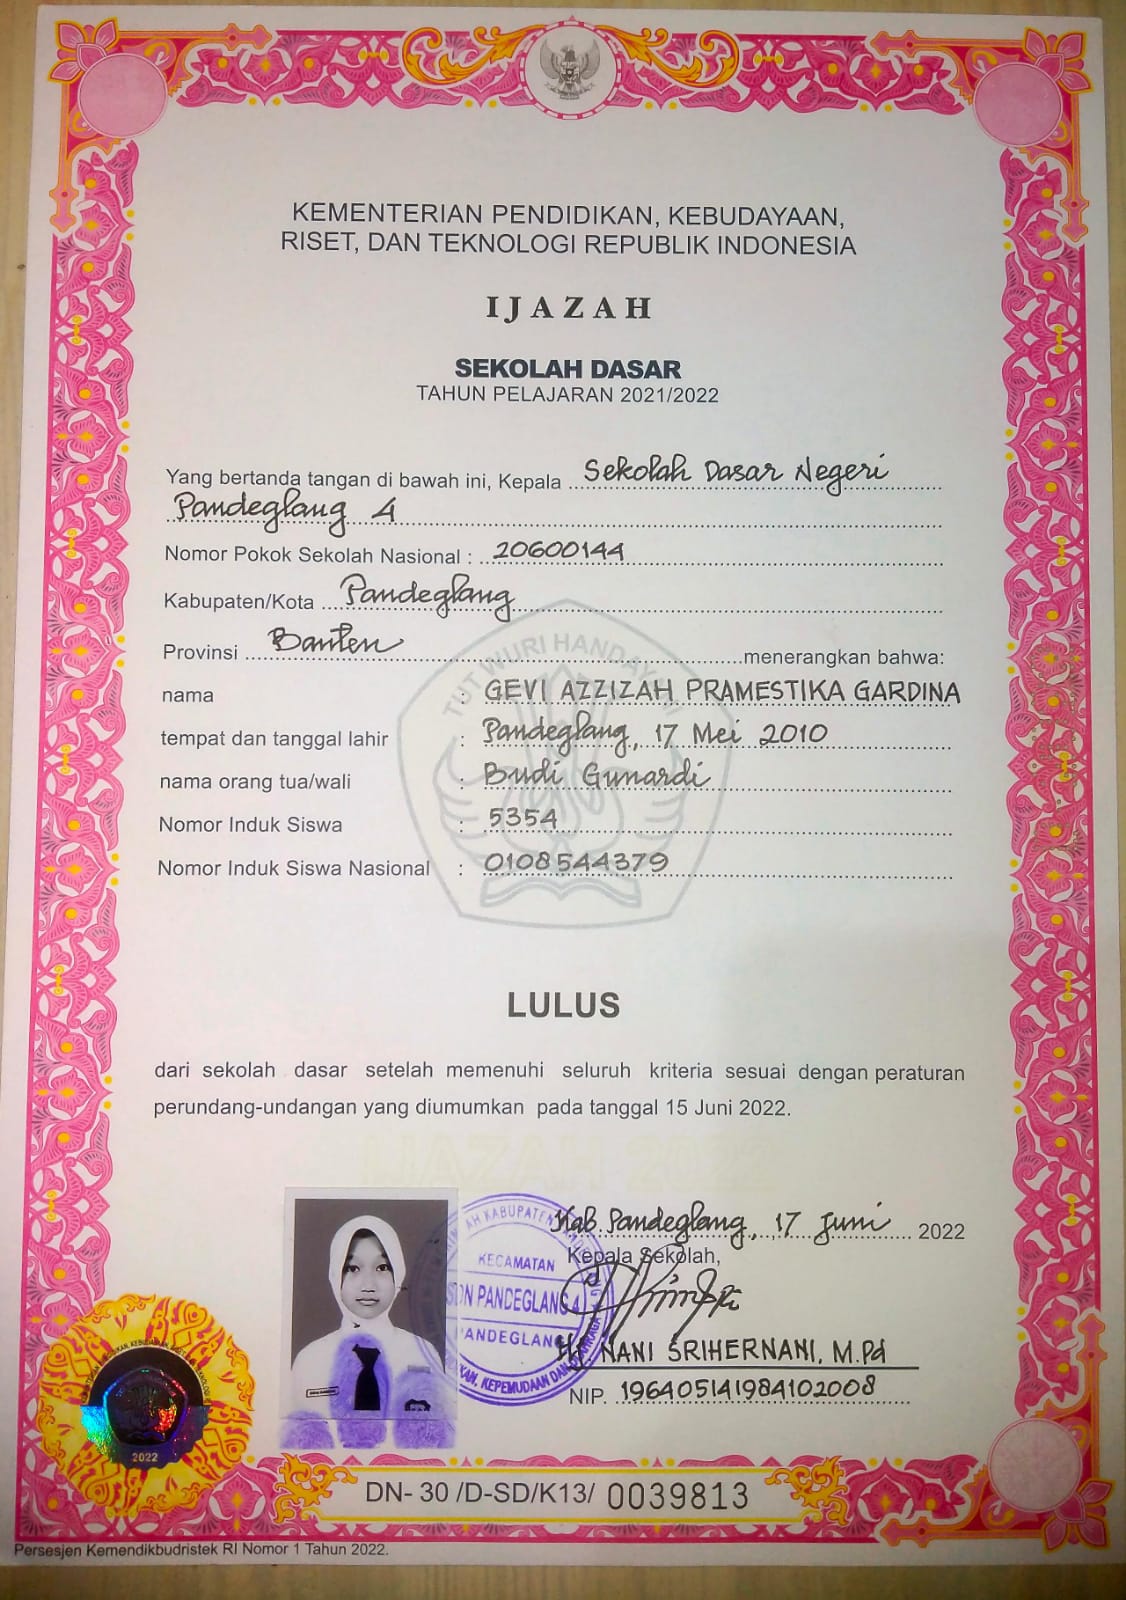 KEMENTERIAN PENDIDIKAN, KEBUDAYAAN,
RISET, DAN TEKNOLOGI REPUBLIK INDONESIA
IJAZAH
SEKOLAH DASAR
TAHUN PELAJARAN 2021/2022
Yang bertanda tangan di bawah ini, Kepala Sekolah Dasar Negeri
Pandeglang 4
Nomor Pokok Sekolah Nasional : 20600144
Kabupaten/Kota Pandeglang
Provinsi Banten menerangkan bahwa:
TUT WURI HANDAYANI
nama : GEVI AZZIZAH PRAMESTIKA GARDINA
tempat dan tanggal lahir : Pandeglang, 17 Mei 2010
nama orang tua/wali : Budi Gunardi
Nomor Induk Siswa : 5354
Nomor Induk Siswa Nasional : 0108544379
LULUS
dari sekolah dasar setelah memenuhi seluruh kriteria sesuai dengan peraturan
perundang-undangan yang diumumkan pada tanggal 15 Juni 2022.
IJAZAH 2022
Kab. Pandeglang, 17 Juni 2022
Kepala Sekolah,
KECAMATAN
SDN PANDEGLANG 4
PANDEGLANG
Hj. NANI SRIHERNANI, M.Pd
NIP. 196405141984102008
2022
DN- 30 /D-SD/K13/ 0039813
Persesjen Kemendikbudristek RI Nomor 1 Tahun 2022.